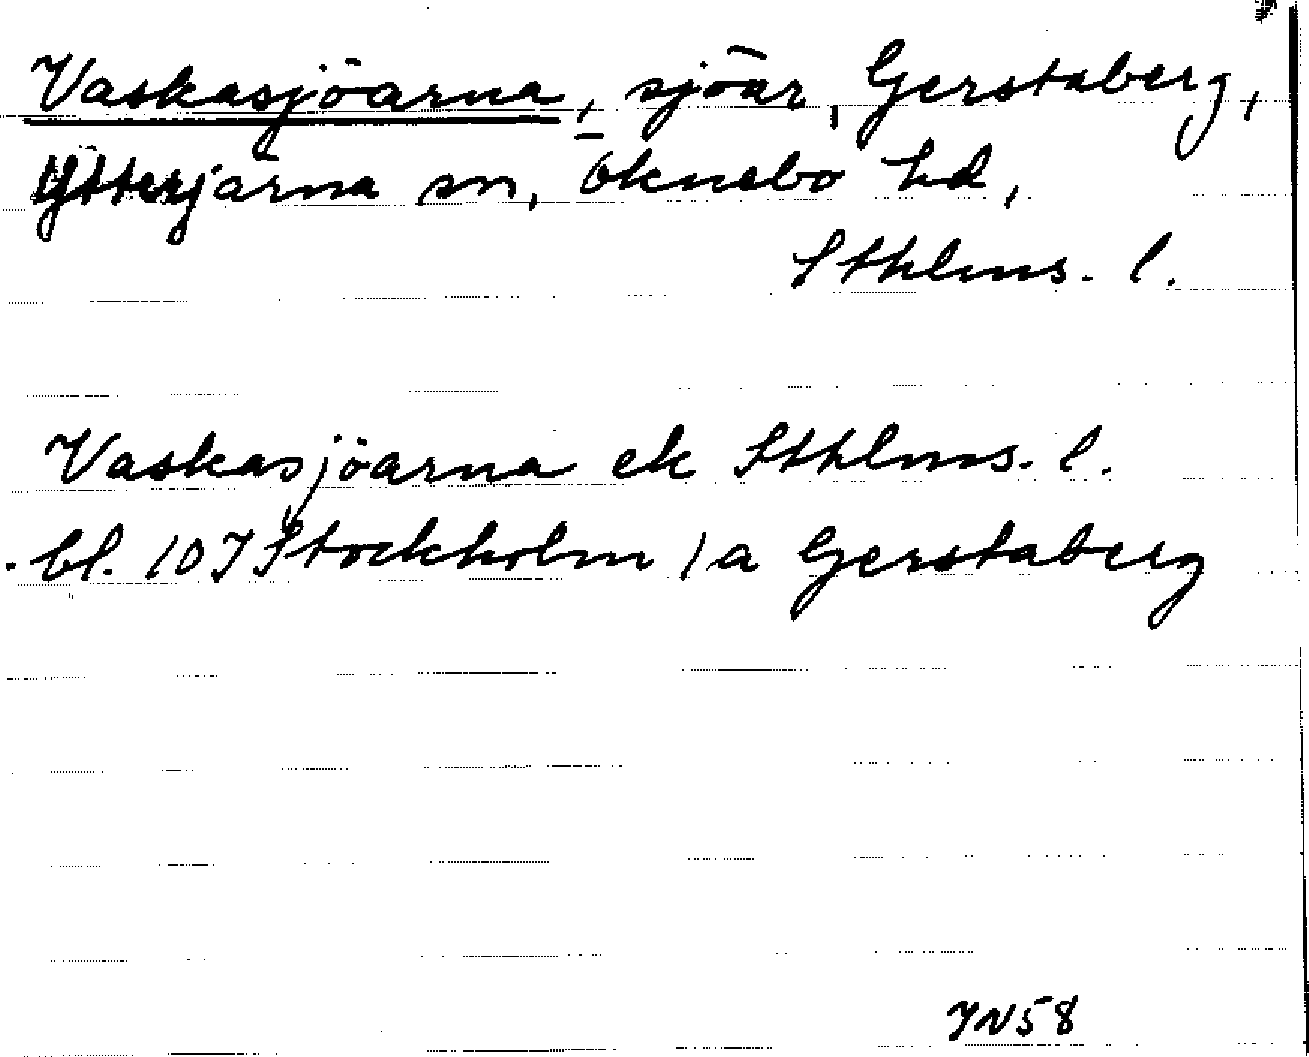 Vaskasjöarna, sjöar, Gerstaberg,
Ytterjärna sn, Öknebo hd,
Sthlms. l.
Vaskasjöarna ek Sthlms. l.
bl. 10I Stockholm 1a Gerstaberg
YN58